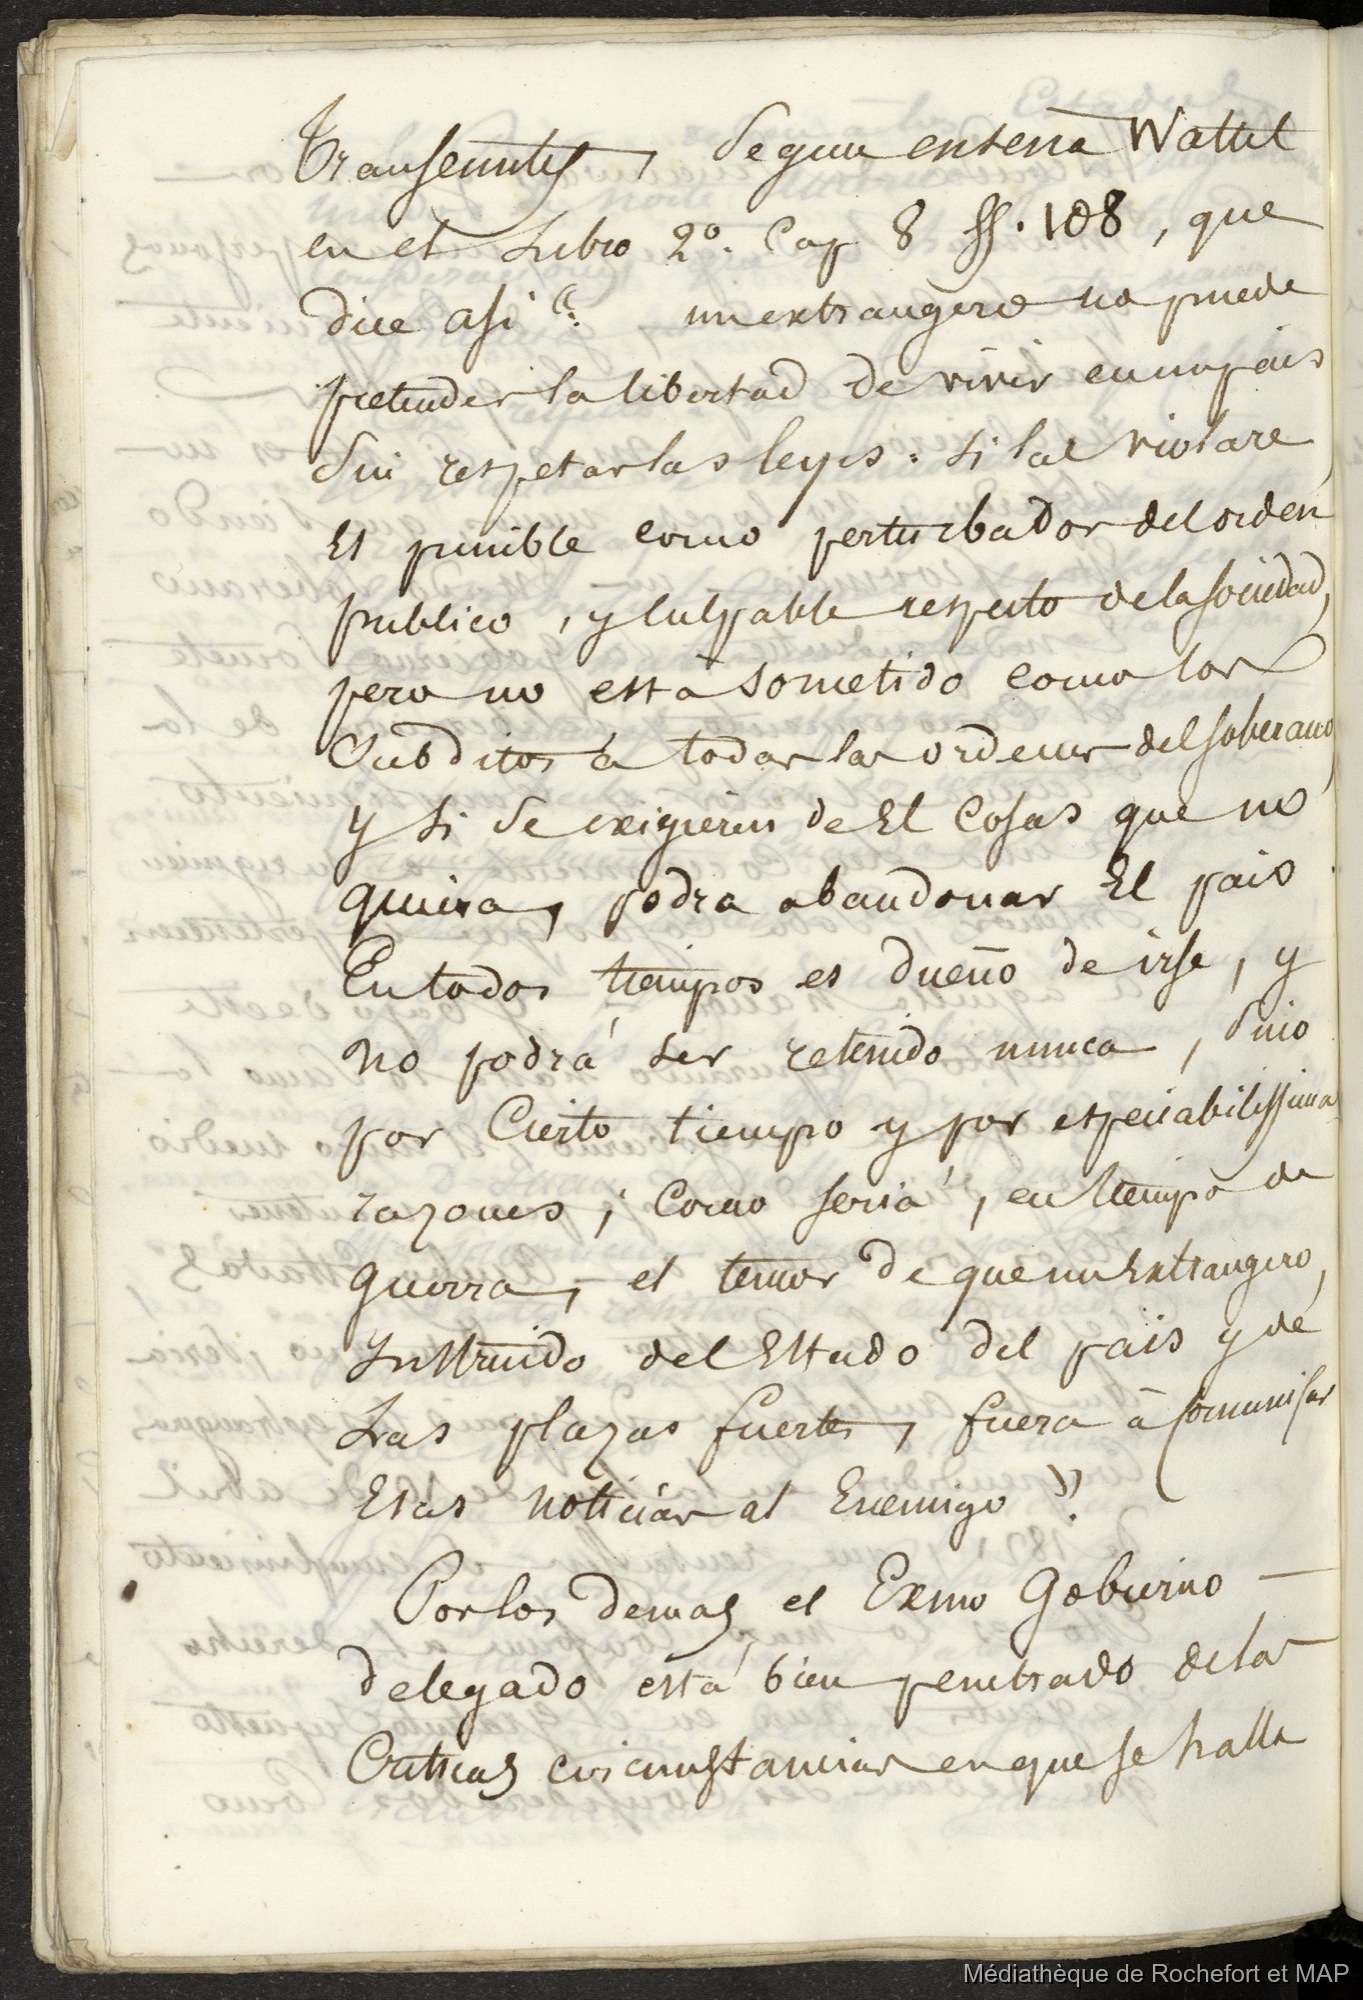 Transeuntes, segun enseña Wattel
en el Libro 2º. Cap 8 §§. 108, que
dice asi “ un extrangero no puede
pretender la libertad de vivir en un pais
sin respetar las leyes: si las violare
es punible como perturbador del orden
publico, y culpable respecto de la sociedad,
pero no está sometido como los
subditos á todas las ordenes del soberano
y si se exigieren de el cosas que no
quiera, podra abandonar el pais.
En todos tiempos es dueño de irse, y
no podrá ser retenido nunca, sino
por cierto tiempo y por
razones; como seria, en tiempo de
guerra, el temor de que un extrangero,
instruido del Estado del pais y de
las plazas fuertes, fuera á comunicar
esas noticias al Enemigo”.
Por los demas, el Exmo Gobierno —
delegado está bien penetrado de las
criticas circunstancias en que se halla
Médiathèque de Rochefort et MAP